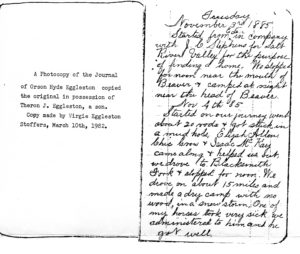 A Photocopy of the Journal
of Orson Hyde Eggleston copied
the original in possession of
Theron J. Eggleston, a son.
Copy made by Virgie Eggleston
Stoffers, March 10th, 1982.
Tuesday
November 3rd 1885
Started from in company
with J. C. Stephens for Salt
River Valley for the purpose
of finding a home. We stopped
for noon near the mouth of
Beaver & camped at night
near the head of Beaver
Nov 4th 85
Started on our journey went
about 20 rods & got stuck in
a mud hole Elijah
& Isaac
came along & helped us out
we drove to Blacksmith
Fork & stopped for noon. We
drove on about 15 miles and
made a dry camp with no
wood, in a snow storm. One of
my horses took very sick we
administered to him and he
got well